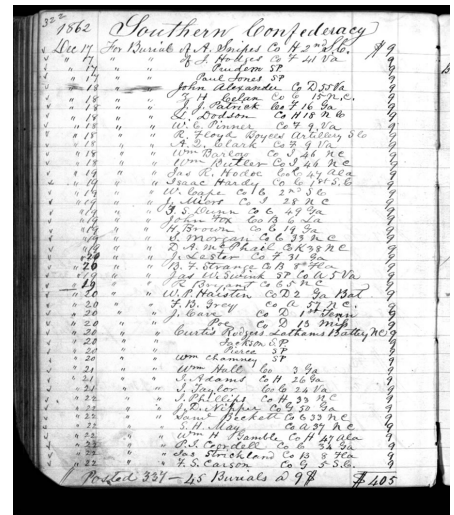 322
1862 Southern Confederacy
Dec 17 For Burial of A. Snipes Co H 2nd S.C. $ 9
" 17 " " of J. Hodges Co F 41 Va 9
" 17 " " Prudem SP 9
" 17 " " Paul Jones SP 9
" 18 " " John Alexander Co D 55 Va 9
" 18 " " Co C 15 N.C. 9
" 18 " " J. J. Patrick Co F 16 Ga 9
" 18 " " L. Dodson Co H 18 N C 9
" 18 " " W. C. Pinner Co F. 9 Va 9
" 18 " " R. Floyd Boyces Artillery S Co 9
" 18 " " A. Q. Clark Co F. 9 Va 9
" 18 " " Wm Barlow Co I 46 NC 9
" 18 " " Wm Butler Co I 46 NC 9
" 19 " " Jas R. Hodoc Co C 47 Ala 9
" 19 " " Isaac Hardy Co C 1st S.C 9
" 19 " " W. Cape Co C 2nd S.C 9
" 19 " " J. Miors Co I 28 NC 9
" 19 " " Z. S. Dunn Co C 49 Ga 9
" 19 " " John Fox Co B 6 La 9
" 19 " " H. Brown Co G 19 Ga 9
" 19 " " S. Morgan Co G 33 NC 9
" 19 " " D. A. McPhail Co K 38 NC 9
" 20 " " J. Lester Co F 31 Ga 9
" 20 " " B. F. Strange Co B 8th Fla 9
" 19 " " Jas W. Swink SP Co A 5 Va 9
" 19 " " R Bryant Co G 5 NC 9
" 20 " " W. P. Haistin Co D 2 Ga Bat 9
" 20 " " F. B. Grey Co A 57 NC. 9
" 20 " " J. Cave Co D 1st Tenn 9
" 20 " " Poe Co D 13 Miss 9
" 20 " " Curtis Rodgers Lathams Battery NC 9
" 20 " " Jackson S.P 9
" 20 " " Pierce SP 9
" 20 " " Wm Chamney SP 9
" 21 " " Wm Hall Co 3 Ga 9
" 21 " " J. Adams Co H 26 Ga 9
" 21 " " J. Taylor Co C 24 Va 9
" 22 " " J. Phillips Co H 33 NC 9
" 22 " " J. D. Nipper Co G 50 Ga 9
" 22 " " Saml Beckett Co G 33 NC 9
" 22 " " S. H. May Co A 37 NC 9
" 22 " " Wm H Gamble Co H 47 Ala 9
" 22 " " P. T. Cordell Co C 34 Ga 9
" 22 " " Jas Strickland Co B 8 Fla 9
" 22 " " F. S. Carson Co G 5 S.C. 9
Posted 337 — 45 Burials @ 9$ $ 405